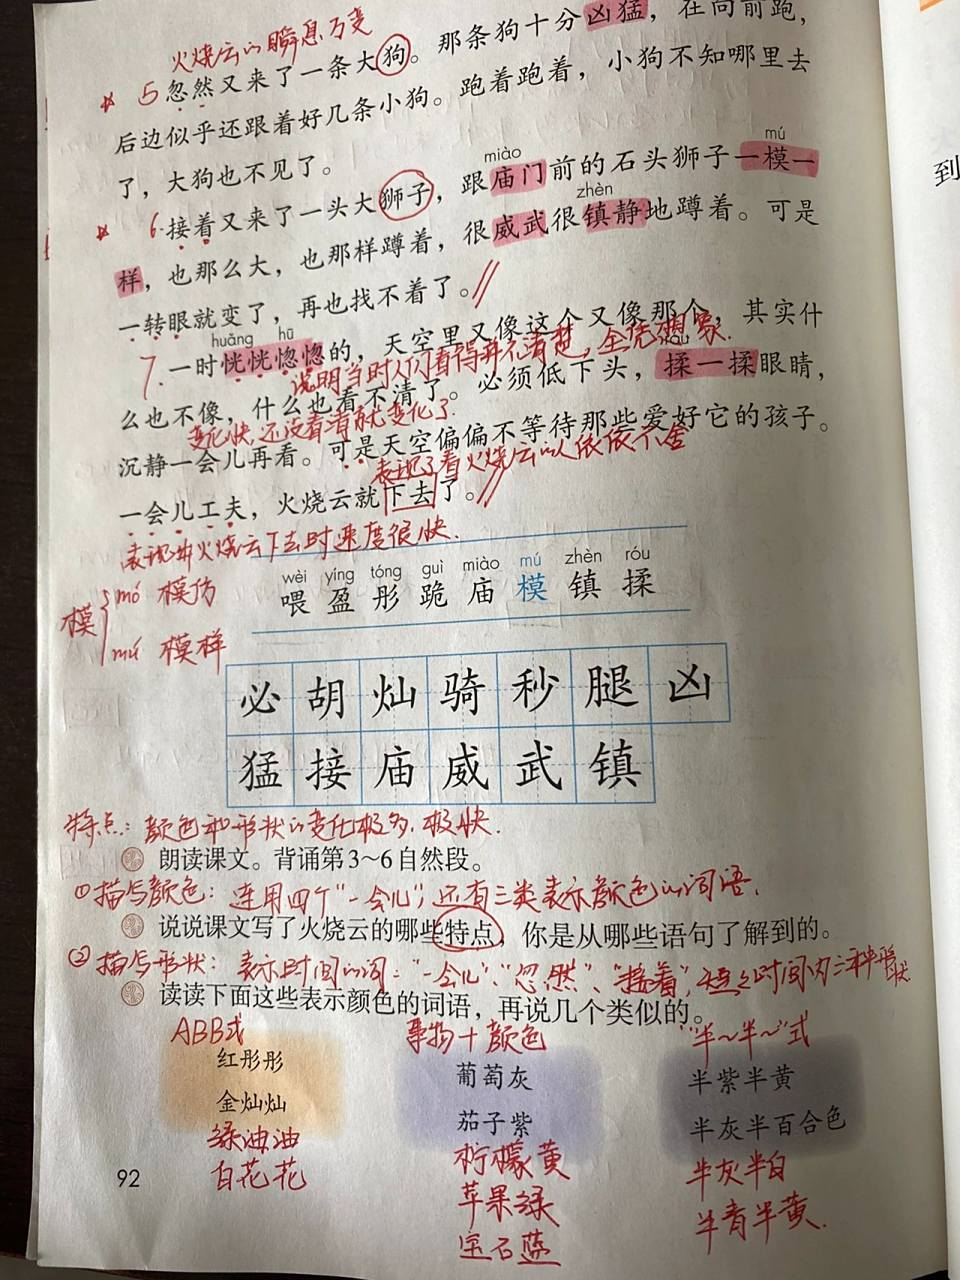 火烧云的瞬息万变
5 忽然又来了一条大狗。那条狗十分凶猛，在向前跑，
后边似乎还跟着好几条小狗。跑着跑着，小狗不知哪里去
了，大狗也不见了。
miào mú
6.接着又来了一头大狮子，跟庙门前的石头狮子一模一
zhèn
样，也那么大，也那样蹲着，很威武很镇静地蹲着。可是
一转眼就变了，再也找不着了。
huǎng hū
7.一时恍恍惚惚的，天空里又像这个又像那个，其实什
说明当时人们看得并不清楚，全凭想象.
么也不像，什么也看不清了。必须低下头，揉一揉眼睛，
变化快，还没看清就变化了.
沉静一会儿再看。可是天空偏偏不等待那些爱好它的孩子。
表现了看火烧云的人依依不舍
一会儿工夫，火烧云就下去了。
表现出火烧云下去时速度很快.
模 mó 模仿
mú 模样
wèi yíng tóng guì miào mú zhèn róu
喂 盈 彤 跪 庙 模 镇 揉
必 胡 灿 骑 秒 腿 凶
猛 接 庙 威 武 镇
特点：颜色和形状的变化极多、极快.
朗读课文。背诵第3~6自然段。
①描写颜色：连用四个“一会儿”，还有三类表示颜色的词语.
说说课文写了火烧云的哪些特点，你是从哪些语句了解到的。
②描写形状：表示时间的词：“一会儿”、“忽然”、“接着”，时间内三种形状
读读下面这些表示颜色的词语，再说几个类似的。
ABB式 事物+颜色 “半~半~”式
红彤彤 葡萄灰 半紫半黄
金灿灿 茄子紫 半灰半百合色
绿油油 柠檬黄 半灰半白
白花花 苹果绿 半青半黄.
宝石蓝
92
到